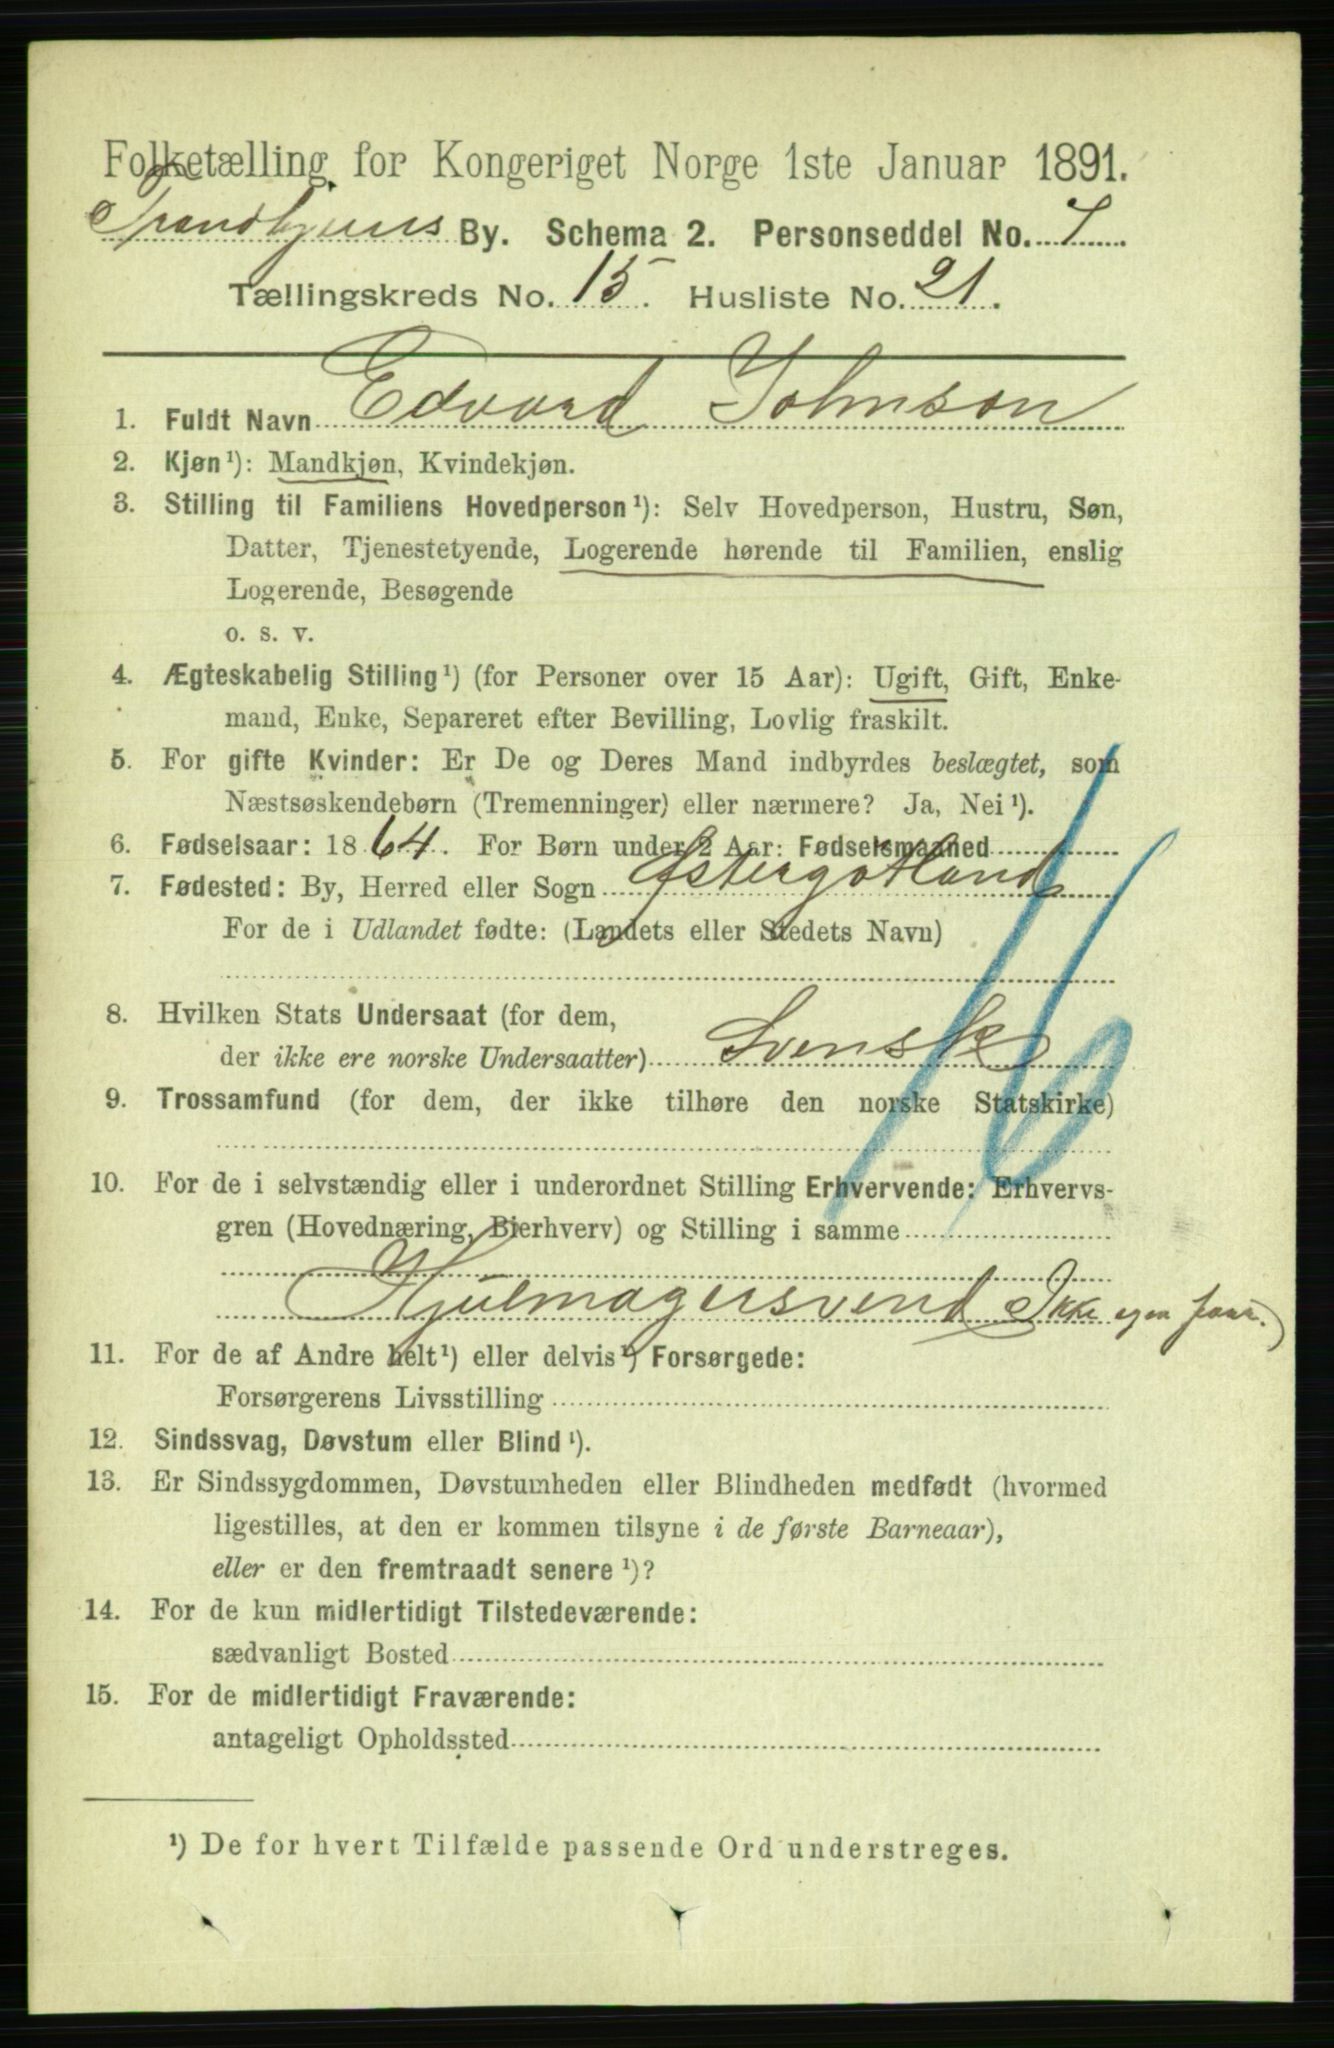 Folketælling for Kongeriget Norge 1ste Januar 1891.
Trondhjems By. Schema 2. Personseddel No. 7
Tællingskreds No. 15. Husliste No. 21.
1. Fuldt Navn Edvard Johnson
2. Kjøn¹): Mandkjøn, Kvindekjøn.
3. Stilling til Familiens Hovedperson¹): Selv Hovedperson, Hustru, Søn,
Datter, Tjenestetyende, Logerende hørende til Familien, enslig
Logerende, Besøgende
o. s. v.
4. Ægteskabelig Stilling¹) (for Personer over 15 Aar): Ugift, Gift, Enke-
mand, Enke, Separeret efter Bevilling, Lovlig fraskilt.
5. For gifte Kvinder: Er De og Deres Mand indbyrdes beslægtet, som
Næstsøskendebørn (Tremenninger) eller nærmere? Ja, Nei¹).
6. Fødselsaar: 1864. For Børn under 2 Aar: Fødselsmaaned
7. Fødested: By, Herred eller Sogn Østergötland
For de i Udlandet fødte: (Landets eller Stedets Navn)
8. Hvilken Stats Undersaat (for dem,
der ikke ere norske Undersaatter) Svensk
9. Trossamfund (for dem, der ikke tilhøre den norske Statskirke)
16
10. For de i selvstændig eller i underordnet Stilling Erhvervende: Erhvervs-
gren (Hovednæring, Bierhverv) og Stilling i samme
Hjulmagersvend Ikke egen
11. For de af Andre helt¹) eller delvis¹) Forsørgede:
Forsørgerens Livsstilling
12. Sindssvag, Døvstum eller Blind¹).
13. Er Sindssygdommen, Døvstumheden eller Blindheden medfødt (hvormed
ligestilles, at den er kommen tilsyne i de første Barneaar),
eller er den fremtraadt senere¹)?
14. For de kun midlertidigt Tilstedeværende:
sædvanligt Bosted
15. For de midlertidigt Fraværende:
antageligt Opholdssted
¹) De for hvert Tilfælde passende Ord understreges.